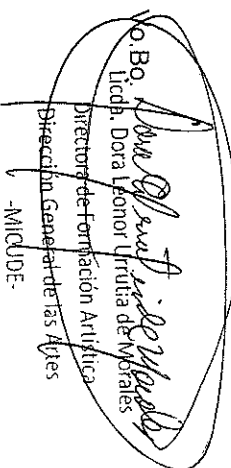 Vo.Bo.
Licda. Dora Leonor Urrutia de Morales
Directora de Formación Artística
Dirección General de las Artes
-MICUDE-